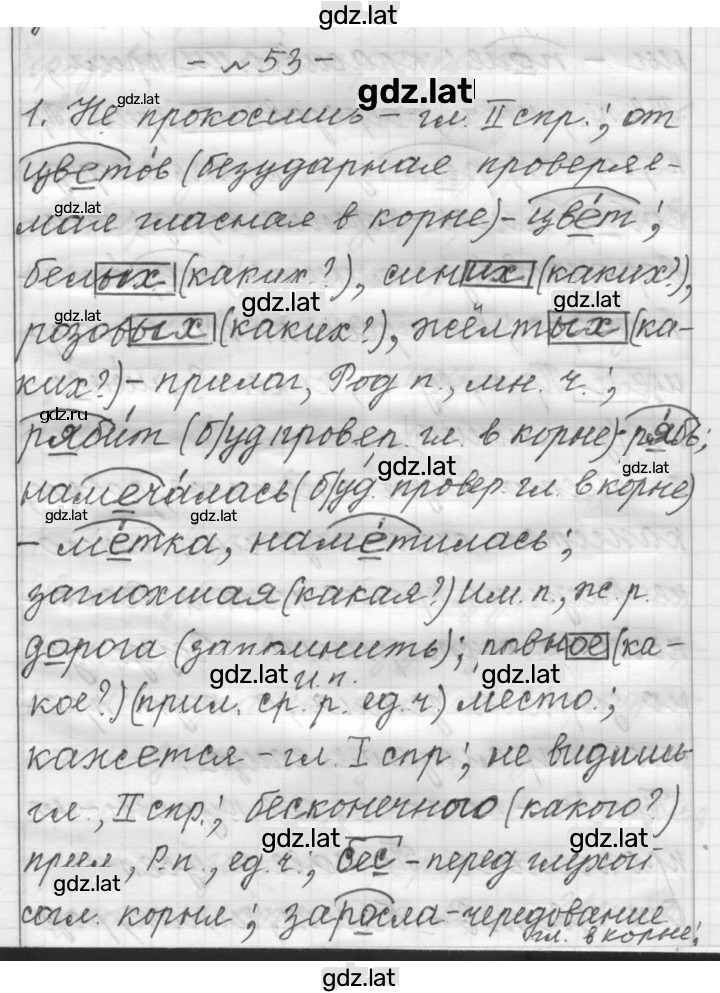 gdz.lat
- № 53 -
gdz.lat
gdz.lat
1. Не прокосишь - гл. II спр.; от
цветов (безударная проверяе-
gdz.lat
мая гласная в корне) - цвет;
белых (каких?), синих (каких?),
gdz.lat
gdz.lat
розовых (каких?), жёлтых (ка-
ких?) - прилаг, Род п., мн. ч.;
gdz.ru
рябит (б/уд провер. гл. в корне) - рябь;
gdz.lat
gdz.lat
намечалась (б/уд. провер. гл. в корне)
gdz.lat
gdz.lat
- метка, наметилась;
заглохшая (какая?) Им. п., ж. р.
дорога (запомнить); ровное (ка-
gdz.lat
и.п.
gdz.lat
кое?) (прил. ср. р. ед. ч.) место.;
кажется - гл. I спр; не видишь
гл., II спр.; бесконечного (какого?)
gdz.lat
gdz.lat
прил, Р.п., ед. ч.; бес - перед глухой
gdz.lat
согл. корня; заросла - чередование
гл. в корне;
gdz.lat